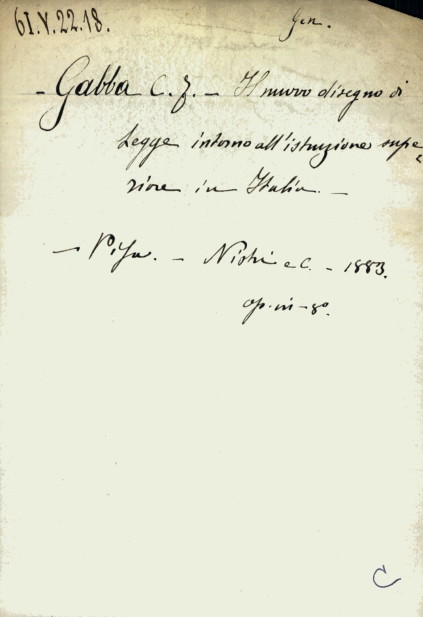 61.V.22.18.
Gen.
- Gabba C. F. - Il nuovo disegno di
legge intorno all'istruzione supe=
riore in Italia. -
- Pisa. - Nistri e C. - 1883.
op. in-8º.
C